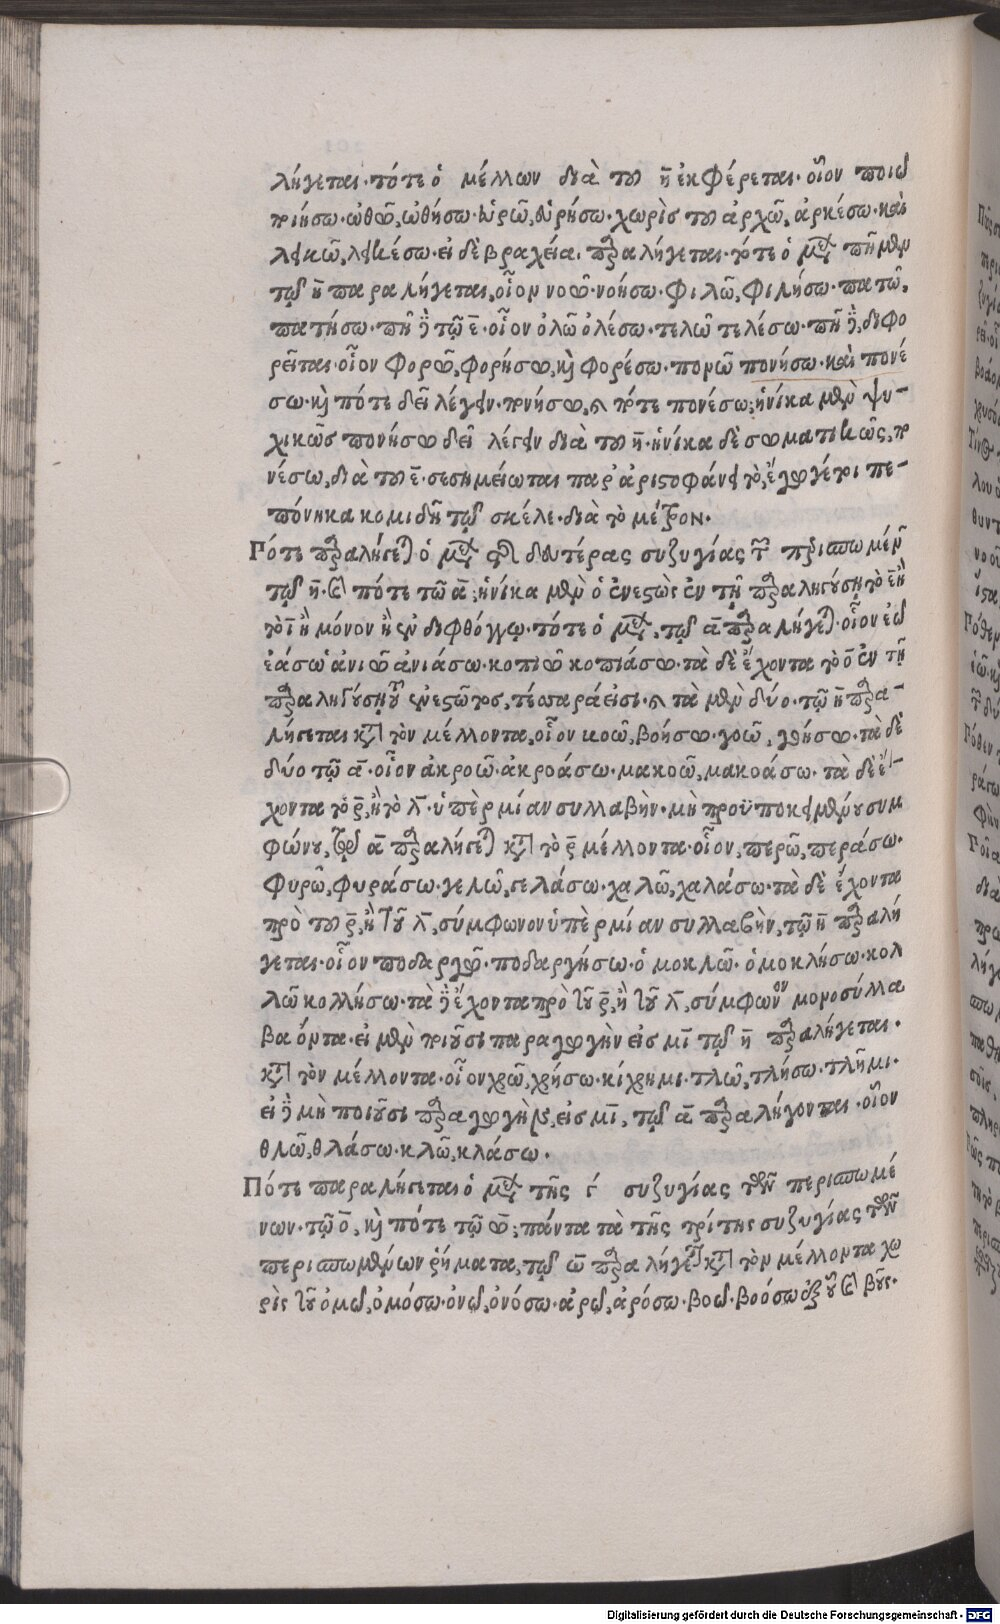 λήγεται· τότε ὁ μέλλων διὰ τοῦ η̄ ἐκφέρεται· οἷον ποιῶ
ποιήσω· ὠθῶ, ὠθήσω· εὑρῶ, εὑρήσω· χωρὶς τοῦ ἀρχῶ, ἀρκέσω· καὶ
εἰ δὲ βραχεῖα, παραλήγεται· πότε ὁ μέλλων πῆ μὲν
τῷ η̄ παραλήγεται, οἷον νοῶ· νοήσω· φιλῶ, φιλήσω· πατῶ,
πατήσω· πῆ δὲ τῷ ε̄· οἷον ὀλῶ ὀλέσω· τελῶ τελέσω· πῆ δὲ, διφο
ρεῖται· οἷον φορῶ, φορήσω, καὶ φορέσω· πονῶ πονήσω· καὶ πονέ
σω· καὶ πότε δεῖ λέγειν· πονήσω, καὶ πότε πονέσω; ἡνίκα μὲν ψυ-
χικῶς πονήσω δεῖ λέγειν διὰ τοῦ η̄· ἡνίκα δὲ σωματικῶς, πο
νέσω, διὰ τοῦ ε̄· σεσημείωται παρ' ἀριστοφάνει τὸ, ἐγὼ γέ τοι πε-
πόνηκα κομιδῆ τῷ σκέλε· διὰ τὸ μέτρον.
Πότε παραλήγεται ὁ μέλλων τῆς δευτέρας συζυγίας τῶν περισπωμένων
τῷ η̄· καὶ πότε τῷ ᾱ; ἡνίκα μὲν ὁ ἐνεστὼς ἐν τῇ παραληγούσῃ τὸ ε̄ ἢ
τὸ ῑ ἢ μόνον ἢ ἐν διφθόγγῳ· τότε ὁ μέλλων, τῷ ᾱ παραλήγεται· οἷον ἐῶ
ἐάσω· ἀνιῶ ἀνιάσω· κοπιῶ κοπιάσω· τὰ δὲ ἔχοντα τὸ ο̄ ἐν τῇ
παραληγούσῃ τοῦ ἐνεστῶτος, τέσσαρά εἰσι· καὶ τὰ μὲν δύο· τῷ η̄ παρα-
λήγεται κατὰ τὸν μέλλοντα, οἷον βοῶ, βοήσω· γοῶ, γοήσω· τὰ δὲ
δύο τῷ ᾱ· οἷον ἀκροῶ· ἀκροάσω· μακοῶ, μακοάσω· τὰ δὲ ἔ-
χοντα τὸ ρ̄, ἢ τὸ λ̄· ὑπὲρ μίαν συλλαβὴν· μὴ προϋποκειμένου συμ
φώνου, τῷ ᾱ παραλήγεται κατὰ τὸν μέλλοντα· οἷον, περῶ, περάσω·
φυρῶ, φυράσω· γελῶ, γελάσω· χαλῶ, χαλάσω· τὰ δὲ ἔχοντα
πρὸ τοῦ ρ̄, ἢ τοῦ λ̄, σύμφωνον ὑπὲρ μίαν συλλαβὴν, τῷ η̄ παραλή
γεται· οἷον ποδαργῶ· ποδαργήσω· ὁμοκλῶ· ὁμοκλήσω· κολ
λῶ κολλήσω· τὰ δὲ ἔχοντα πρὸ τοῦ ρ̄, ἢ τοῦ λ̄, σύμφωνον μονοσύλλα
βα ὄντα· εἰ μὲν ποιοῦσι παραγωγὴν εἰς μῑ τῷ η̄ παραλήγεται·
κατὰ τὸν μέλλοντα· οἷον χρῶ, χρήσω· κίχρημι· τλῶ, τλήσω· τλῆμι·
εἰ δὲ μὴ ποιοῦσι παραγωγὴν εἰς μῑ, τῷ ᾱ παραλήγονται· οἷον
θλῶ, θλάσω· κλῶ, κλάσω.
Πότε παραλήγεται ὁ μέλλων τῆς γ συζυγίας τῶν περισπωμέ
νων· τῷ ο̄, καὶ πότε τῷ ω̄; πάντα τὰ τῆς τρίτης συζυγίας τῶν
περισπωμένων ῥήματα, τῷ ω̄ παραλήγεται κατὰ τὸν μέλλοντα χω
ρὶς τοῦ ὀμῶ, ὀμόσω· ὀνῶ, ὀνόσω· ἀρῶ, ἀρόσω· βοῶ· βοόσω ἐξ οὗ καὶ βοῦς·
Digitalisierung gefördert durch die Deutsche Forschungsgemeinschaft - DFG